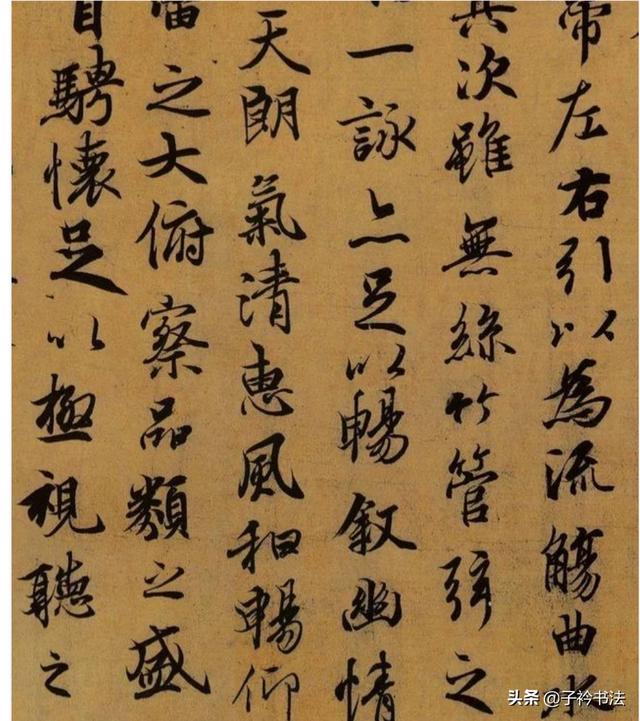 帶左右引以為流觴曲水
其次雖無絲竹管弦之
一詠亦足以暢敘幽情
天朗氣清惠風和暢仰
宙之大俯察品類之盛
目騁懷足以極視聽之
头条 @子衿书法